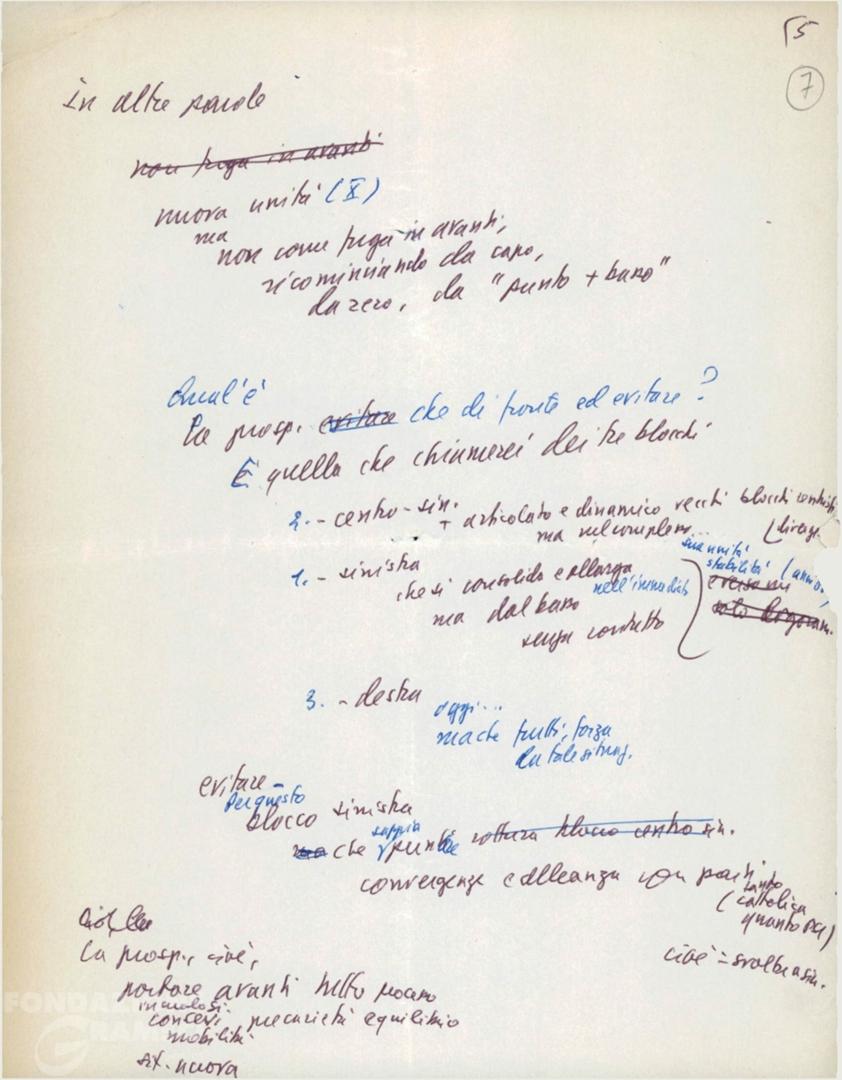 5
7
In altre parole
non fuga in avanti
nuova unità (X)
ma
non come fuga in avanti,
ricominciando da capo,
da zero, da "punto + basso"
Qual'è
la prosp. evitare che di fronte ed evitare?
È quella che chiamerei dei tre blocchi
2. - centro-sin.
+ articolato e dinamico vecchi blocchi centristi
ma nel compless...
(diverg.
1. - sinistra
che si consolida e allarga
ma dal basso nell'immediato
senza contatto
sua unità
stabilità
3. - destra
oggi...
ma che frutti, forza
da tale situaz.
evitare -
Per questo
blocco sinistra
ma che sappia
rottura blocco centro sin.
convergenze e alleanza con parti
(tanto
cattolica
quanto PSI)
cioè = svolta a sin.
La prosp., cioè,
portare avanti tutto
precarietà equilibrio
mobilità
sit. nuova
FONDAZIONE
GRAMSCI